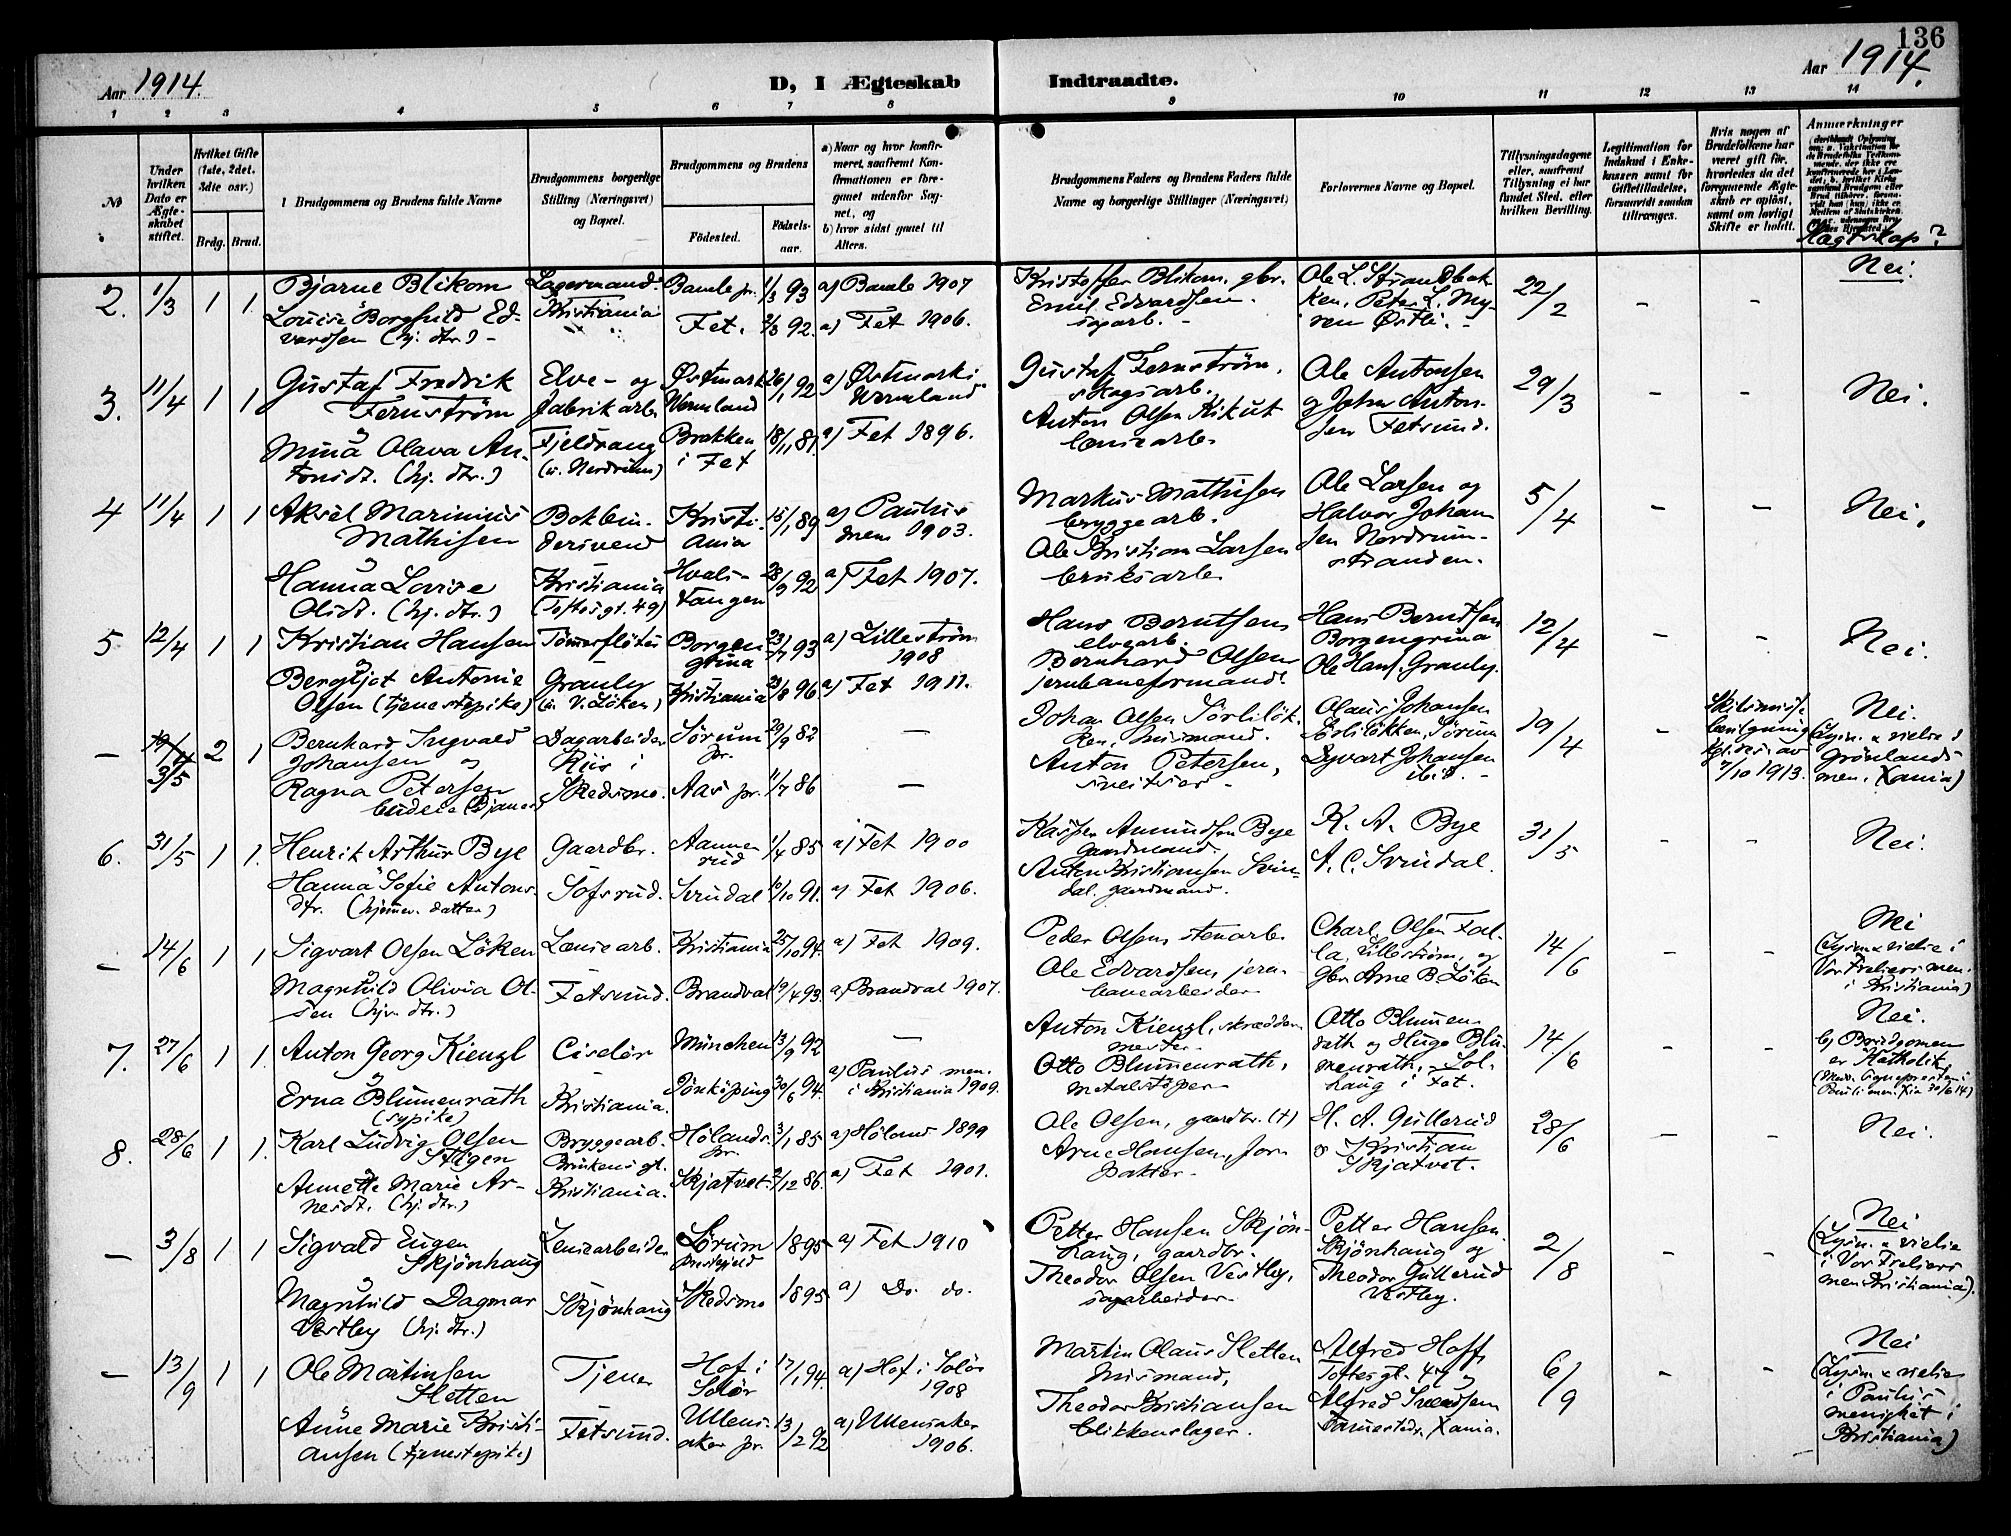 136
Aar 1914.
D, I Ægteskab
Indtraadte.
Aar 1914.
1 2 3 4 5 6 7 8 9 10 11 12 13 14
№
Under hvilken Dato er Ægteskabet stiftet.
Hvilket Gifte (1ste, 2det, 3die osv.)
Brdg. Brud.
Brudgommens og Brudens fulde Navne
Brudgommens borgerlige Stilling (Næringsvei) og Bopæl.
Brudgommens og Brudens
Fødested.
Fødselsaar.
a) Naar og hvor konfirmeret, saafremt Konfirmationen er foregaaet udenfor Sognet, og
b) hvor sidst gaaet til Alters.
Brudgommens Faders og Brudens Faders fulde Navne og borgerlige Stillinger (Næringsvei)
Forlovernes Navne og Bopæl.
Tillysningsdagene eller, saafremt Tillysning ei har fundet Sted, efter hvilken Bevilling.
Legitimation for Indskud i Enkekassen samt for Giftetilladelse, forsaavidt saadan tiltrænges.
Hvis nogen af Brudefolkene har været gift før, hvorledes da det foregaaende Ægteskab er opløst, samt om lovligt Skifte er holdt.
Anmærkninger
Slægtskap?
2. 1/3 1 1 Bjarne Blikom Lagermand Bamle pr. 1/3 93 a) Bamle 1907 Kristoffer Blikom, gbr. Ole L. Strandbakken, Peter L. Myren Østli. 22/2 - - Nei.
Louise Borghild Edvardsen (hj. dtr.) Kristiania Fet. 2/3 92. a) Fet 1906. Emil Edvardsen sagarb.
3. 11/4 1 1 Gustaf Fredrik Fernström Elve- og fabrikarb. Østmark Wermland 26/1 92 a) Østmark i Wermland Gustaf Fernström, skogsarb. Ole Antonsen og Johan Antonsen Fetsund. 29/3 - - Nei.
Mina Olava Antonsdt. (hj. dtr.) Fjeldvang (u. Nerdrum) Brakken i Fet 18/11 81 a) Fet 1896. Anton Olsen Kikut lænsearb.
4 11/4 1 1 Aksel Marinius Mathisen Bokbindersvend Kristiania 15/1 89 a) Paulus men. 1903. Markus Mathisen bryggearb. Ole Larsen og Halvor Johansen Nerdrumstranden. 5/4 - - Nei.
Hanna Lovise Olsdt. (hj. dtr.) Kristiania (Toftesgt. 49) Hvalstangen 28/9 92 a) Fet 1907. Ole Kristian Larsen bruksarb.
5 12/4 1 1 Kristian Hansen Tømmerfløter Borgengrina 23/7 93 a) Lillestrøm 1908 Hans Berntsen elvearb. Hans Berntsen Borgengrina Ole Hans. Granby. 12/4 - - Nei.
Bergljot Antonie Olsen (tjenestepike) Granby (u. V. Löken) Kristiania 23/8 96 a) Fet 1911. Bernhard Olsen jernbaneformand.
- 19/4 3/5 2 1 Bernhard Ingvald Johansen og Dagarbeider Sørum pr. 29/9 82 - Johan Olsen Sörliløkken, husmand. Olaus Johansen Sörliløkken, Sörum Syvart Johansen ibid. 19/4 - Skilsmissebevilgning av 7/10 1913. Nei. (Lysn. & vielse i Grønlands men., Xania)
Ragna Petersen budeie Riis i Skedsmo. Aas pr. 11/7 86 - Anton Petersen, sveitser
6. 31/5 1 1. Henrik Arthur Bye Gaardbr. Aamerud 1/4 85 a) Fet 1900 Kasper Amundsen Bye gaardmand. K. A. Bye A. C. Svindal. 31/5 - - Nei.
Hanna Sofie Antonsdtr. (hjemmev. datter) Tofsrud. Svindal 10/10 91. a) Fet 1906. Anton Kristiansen Svindal. gaardmand.
- 14/6 1 1 Sigvart Olsen Löken Lænsearb. Kristiania 25/10 94. a) Fet 1909. Peder Olsen, stenarb. Charl. Olsen Falla, Lillestrøm, og gbr. Arne B. Löken 14/6 - - Nei (Lysn. & vielse i Vor Frelsers men. i Kristiania)
Magnhild Olivia Olsen (hjv. dtr.) Fetsund. Brandval 19/4 93. a) Brandval 1907. Ole Edvardsen, jernbanearbeider
7. 27/6 1 1. Anton Georg Kienzl Ciselør München 13/9 92 - Anton Kienzl, skræddermester. Otto Blumenrath og Hugo Blumenrath, Solhaug i Fet. 14/6 - - Nei. b) Brudgommen er Katholik
Erna Blumenrath (sypike) Kristiania. Jönköping 30/6 94. a) Paulus men. i Kristiania 1909. Otto Blumenrath, metalstøper
8. 28/6 1 1. Karl Ludvig Olsen Stigen Bryggearb. Brinkens gt. Hølands pr. 3/1 85 a) Høland 1899 Ole Olsen, gaardbr. (†) H. A. Gullerud og Kristian Skjatvet. 28/6 - - Nei.
Annette Marie Arnesdt. (hj. dtr.) Kristiania. Skjatvet. 2/12 86. a) Fet 1901. Arne Hansen, forpakter
- 3/8 1 1 Sigvald Eugen Skjönhaug Lænsearbeider Sörum prestegjeld 1895 a) Fet 1910 Petter Hansen Skjönhaug, gaardbr. Petter Hansen Skjönhaug og Theodor Gullerud Vestby. 2/8 - - Nei (Lysn. & vielse i Vor Frelsers men. Kristiania).
Magnhild Dagmar Vestby (hj. dtr.) Skjönhaug Skedsmo 1895 a) Do. do. Theodor Olsen Vestby, sagarbeider
- 13/9 1 1 Ole Martinsen Sletten Tjener Hof i Solør 17/1 94. a) Hof i Solør 1908 Martin Olaus Sletten husmand, Alfred Hoff Toftesgt. 47 og Alfred Svendsen Xania. 6/9 - - Nei (Lysn. & vielse i Paulus menighet i Kristiania)
Anne Marie Kristiansen (tjenestepike) Fetsund. Ullensaker pr. 13/2 92 a) Ullensaker 1906. Theodor Kristiansen blikkenslager.